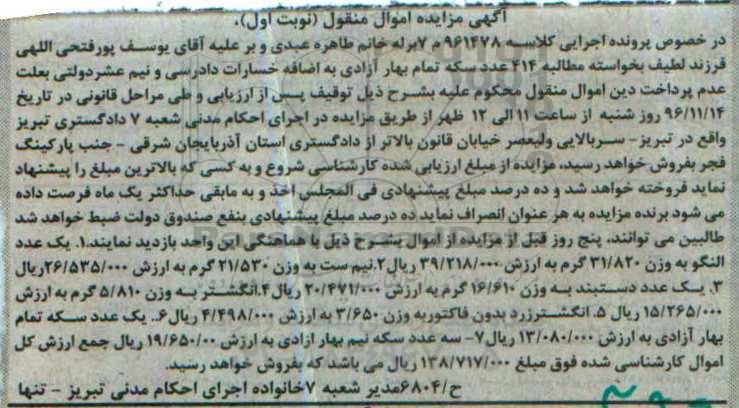 آگهی مزایده اموال منقول (نوبت اول).
در خصوص پرونده اجرایی کلاسه ۹۶۱۴۷۸ م ۷برله خانم طاهره عبدی و بر علیه آقای یوسف پورفتحی اللهی
فرزند لطیف بخواسته مطالبه ۴۱۴ عدد سکه تمام بهار آزادی به اضافه خسارات دادرسی و نیم عشردولتی بعلت
عدم پرداخت دین اموال منقول محکوم علیه بشرح ذیل توقیف پس از ارزیابی و طی مراحل قانونی در تاریخ
۹۶/۱۱/۱۴ روز شنبه از ساعت ۱۱ الی ۱۲ ظهر از طریق مزایده در اجرای احکام مدنی شعبه ۷ دادگستری تبریز
واقع در تبریز- سربالایی ولیعصر خیابان قانون بالاتر از دادگستری استان آذربایجان شرقی - جنب پارکینگ
فجر بفروش خواهد رسید، مزایده از مبلغ ارزیابی شده کارشناسی شروع و به کسی که بالاترین مبلغ را پیشنهاد
نماید فروخته خواهد شد و ده درصد مبلغ پیشنهادی فی المجلس اخذ و به مابقی حداکثر یک ماه فرصت داده
می شود برنده مزایده به هر عنوان انصراف نماید ده درصد مبلغ پیشنهادی بنفع صندوق دولت ضبط خواهد شد
طالبین می توانند، پنج روز قبل از مزایده از اموال بشرح ذیل با هماهنگی این واحد بازدید نمایند.۱. یک عدد
النگو به وزن ۳۱/۸۲۰ گرم به ارزش ۳۹/۲۱۸/۰۰۰ ریال۲.نیم ست به وزن ۲۱/۵۳۰ گرم به ارزش ۲۶/۵۳۵/۰۰۰ریال
۳. یک عدد دستبند به وزن ۱۶/۶۱۰ گرم به ارزش ۲۰/۴۷۱/۰۰۰ ریال۴.انگشتر به وزن ۵/۸۱۰ گرم به ارزش
۱۵/۲۶۵/۰۰۰ ریال ۵. انگشترزرد بدون فاکتوربه وزن ۳/۶۵۰ به ارزش ۴/۴۹۸/۰۰۰ ریال۶.. یک عدد سکه تمام
بهار آزادی به ارزش ۱۳/۰۸۰/۰۰۰ ریال۷- سه عدد سکه نیم بهار ازادی به ارزش ۱۹/۶۵۰/۰۰ ریال جمع ارزش کل
اموال کارشناسی شده فوق مبلغ ۱۳۸/۷۱۷/۰۰۰ ریال می باشد که بفروش خواهد رسید.
ح/۶۸۰۴مدیر شعبه ۷خانواده اجرای احکام مدنی تبریز - تنها